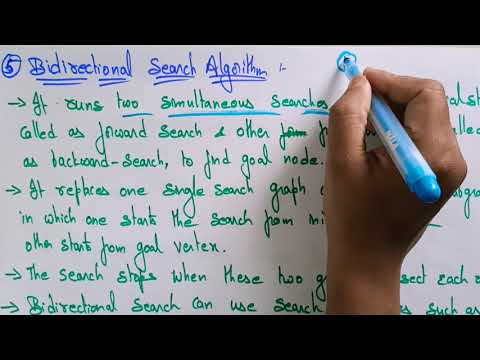 ⑤ Bidirectional Search Algorithm :-
→ It runs two simultaneous searches
called as forward Search & other from
as backward-search, to find goal node.
→ It replaces one single search graph
in which one starts the search from
other starts from goal vertex.
→ The search stops when these two
→ Bidirectional Search can use search such as